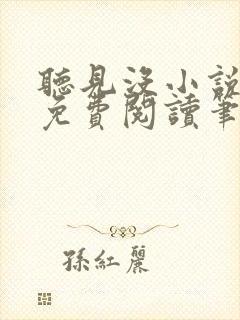 聽見沒小說
免費閱讀筆
孫紅麗